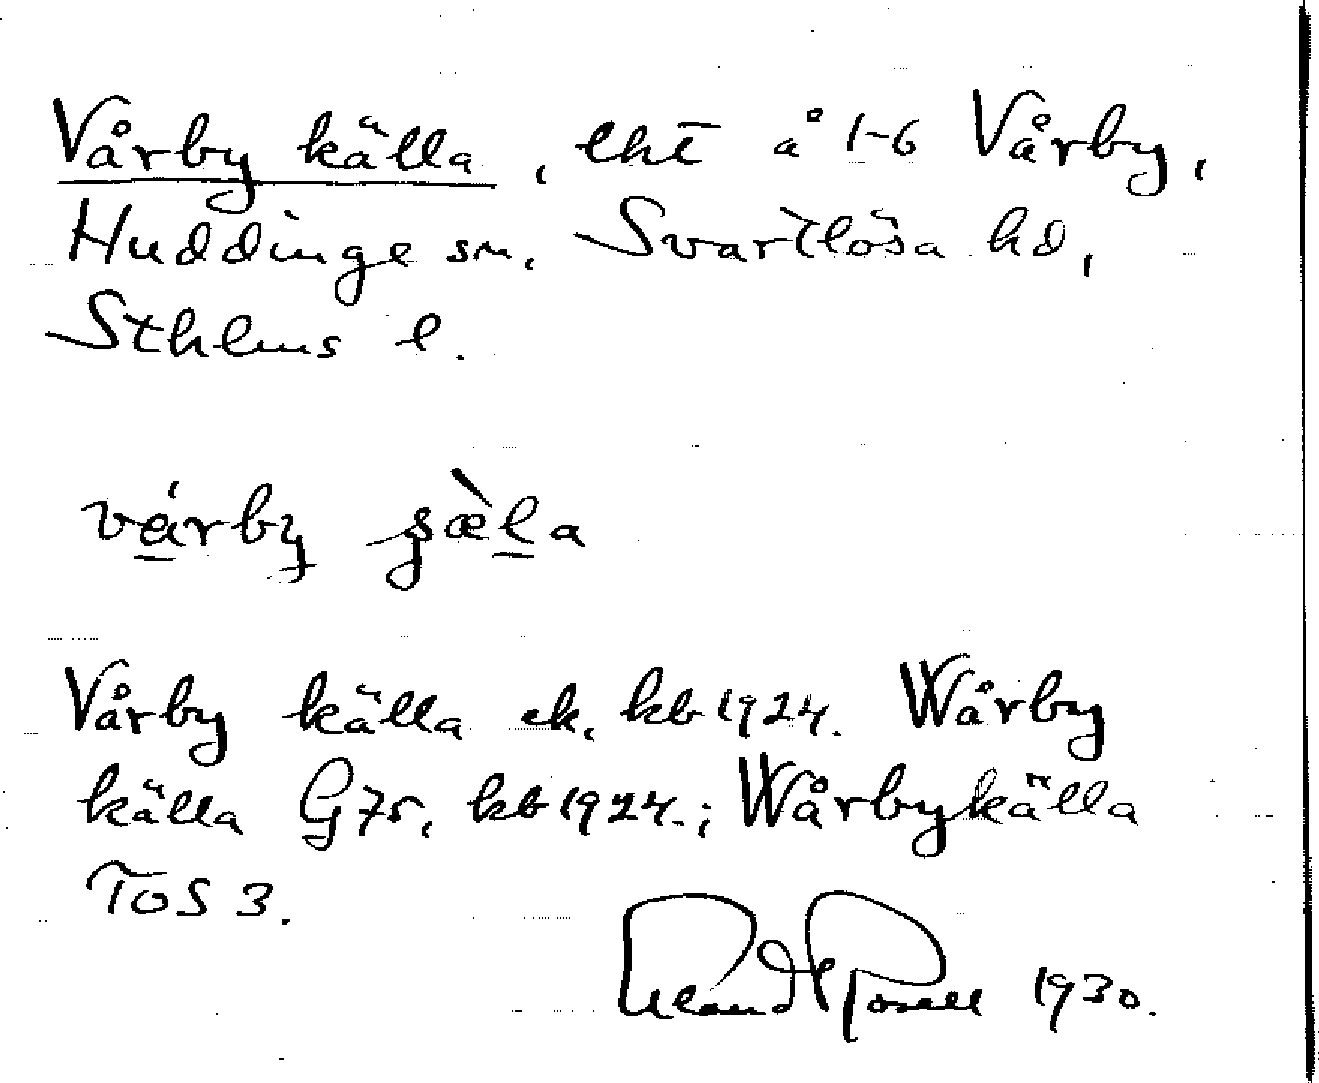 Vårby källa, lht å 1-6 Vårby,
Huddinge sn, Svartlösa hd,
Sthlms l.
Vårby källa ek, kb 1924. Wårby
källa G75, kb 1924.; Wårbykälla
TOS 3.
1930.